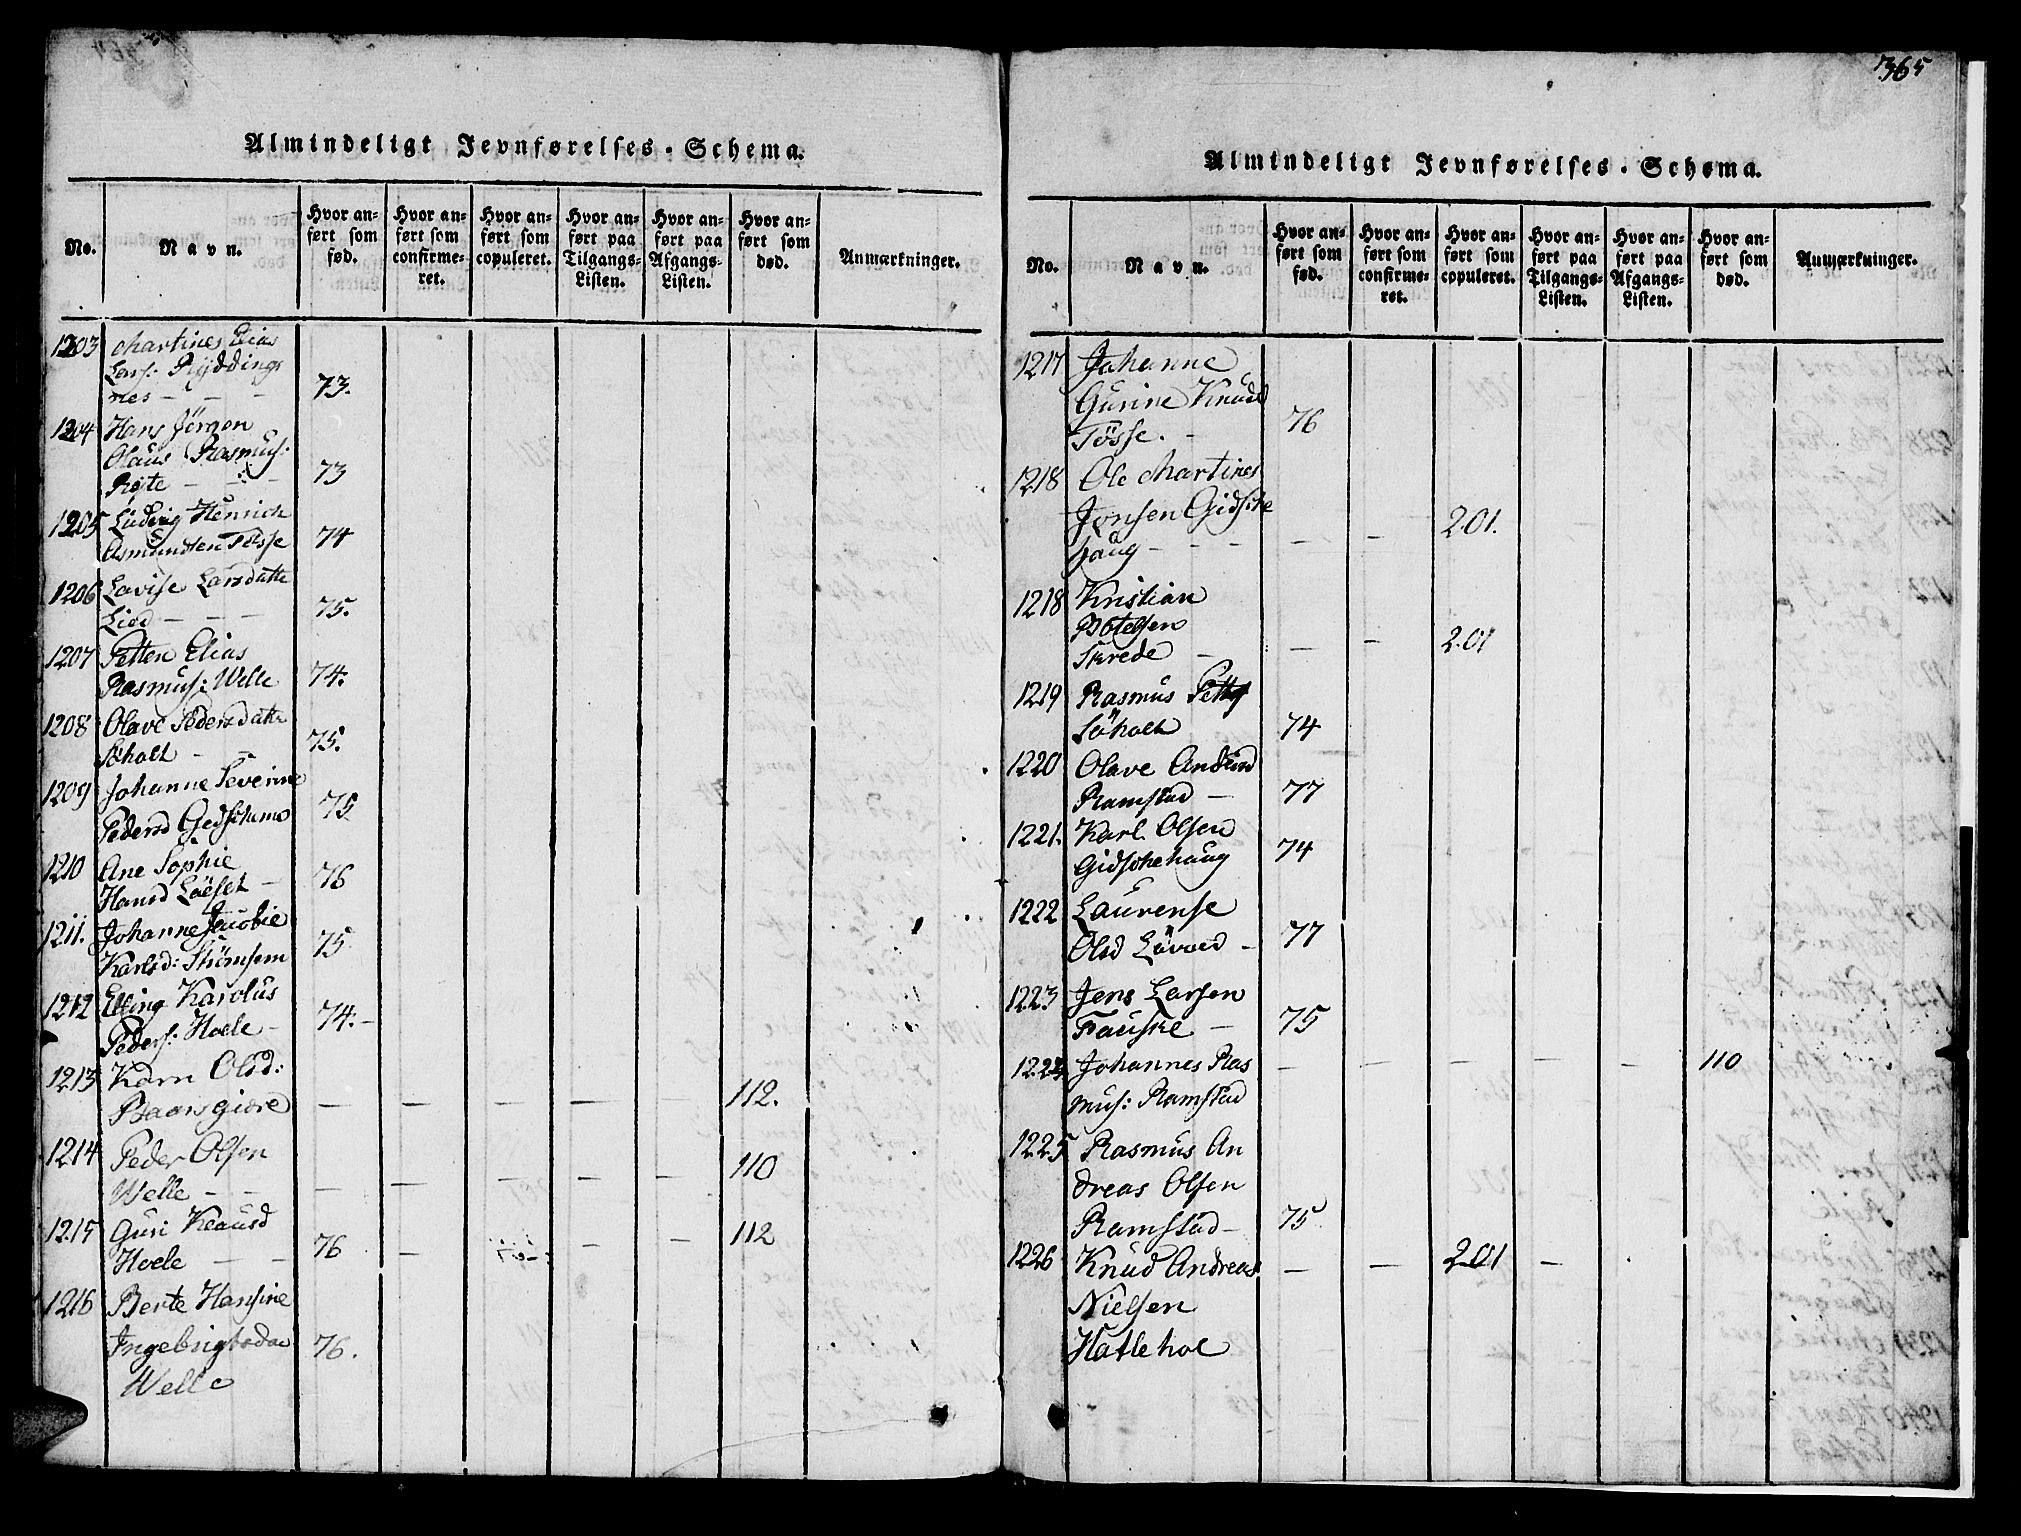 Almindeligt Jevnførelses-Schema.
No.
Navn.
Hvor anført som fød.
Hvor anført som confirmeret.
Hvor anført som copuleret.
Hvor anført paa Tilgangs-Listen.
Hvor anført paa Afgangs-Listen.
Hvor anført som død.
Anmærkninger.
1203 Martines Elias
Lars: Ryddings
nes - - - 73.
1204 Hans Jörgen
Olaus Rasmus:
Röste - - - 73
1205 Ludvig Henrich
Asmundsen Tösse 74
1206 Lavise Larsdatte
Lied - - - 75.
1207 Petter Elias
Rasmus: Welle 74.
1208 Olave Pedersdatte
Söholt - - 75.
1209 Johanne Severinne
Pedersd Gedschemo 75
1210 Ane Sophie
Hansd Löeset - 76
1211. Johanne Jacobie
Karlsd: Strömsem 75
1212 Elling Karolus
Peders: Hoele - 74. -
1213 Karn Olsd:
Baarsgiære - - - - - 112.
1214 Peder Olsen
Welle - - - - - - - 110
1215 Guri Klausd
Hoele - - 76 - - - - 112
1216 Berte Hansine
Ingebrigtsdae 76.
Welle
365
Almindeligt Jevnførelses-Schema.
No.
Navn.
Hvor anført som fød.
Hvor anført som confirmeret.
Hvor anført som copuleret.
Hvor anført paa Tilgangs-Listen.
Hvor anført paa Afgangs-Listen.
Hvor anført som død.
Anmærkninger.
1217 Johanne
Gurine Knudd
Tösse. - 76
1218 Ole Martines
Jonsen Gidsche
houg - - - - - 201.
1218 Kristian
Botelsen
Skrede - - - 201
1219 Rasmus Petts
Söholt 74
1220 Olave Andersd
Ramstad - 77
1221. Karl Olsen
Gidschehaug 74
1222 Laurense
Olsd Lövoed - 77
1223 Jens Larsen
Fauske - 75
1224 Johannes Ras - - - - - 110
mus: Ramstad
1225 Rasmus An
dreas Olsen
Ramstad - 75
1226 Knud Andreas - - 201 -
Nielsen
Hatlehol